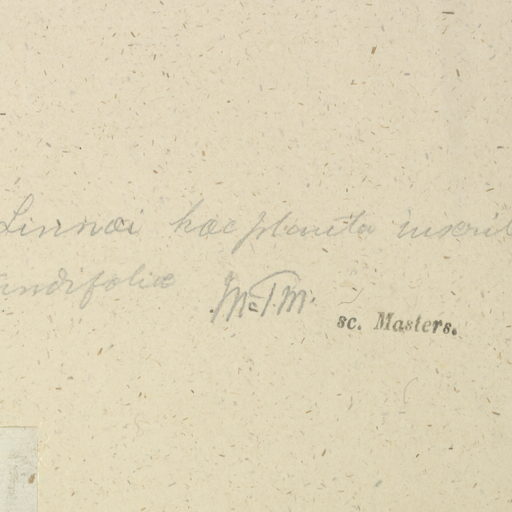 Linnæi hæc planta inscrib
andifoliæ McT.M.
sc. Masters.